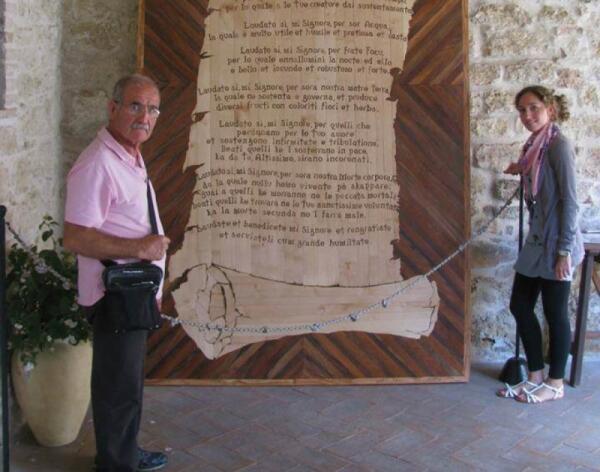 per lo quale a le tue creature dai sustentamento
Laudato si, mi Signore, per sor Acqua,
la quale è multo utile et humile et pretiosa et casta
Laudato si, mi Signore, per frate Focu,
per lo quale ennallumini la nocte ed ello
è bello et iocundo et robustoso et forte.
Laudato si, mi Signore, per sora nostra matre Terra,
la quale ne sustenta e governa, et produce
diversi fructi con coloriti fiori et herba.
Laudato si, mi Signore, per quelli che
perdonano per lo tuo amore
et sostengono infirmitate e tribulatione.
Beati quelli ke 'l sosterrano in pace,
ka da Te, Altissimo, sirano incoronati.
Laudato si, mi Signore, per sora nostra Morte corpora
da la quale nullu homo vivente pò skappare:
guai a quelli ke morranno ne le peccata mortali
beati quelli ke trovarà ne le tue sanctissime voluntati
ka la morte secunda no 'l farrà male.
Laudate et benedicete mi Signore et rengratiate
et serviateli cum grande humilitate.